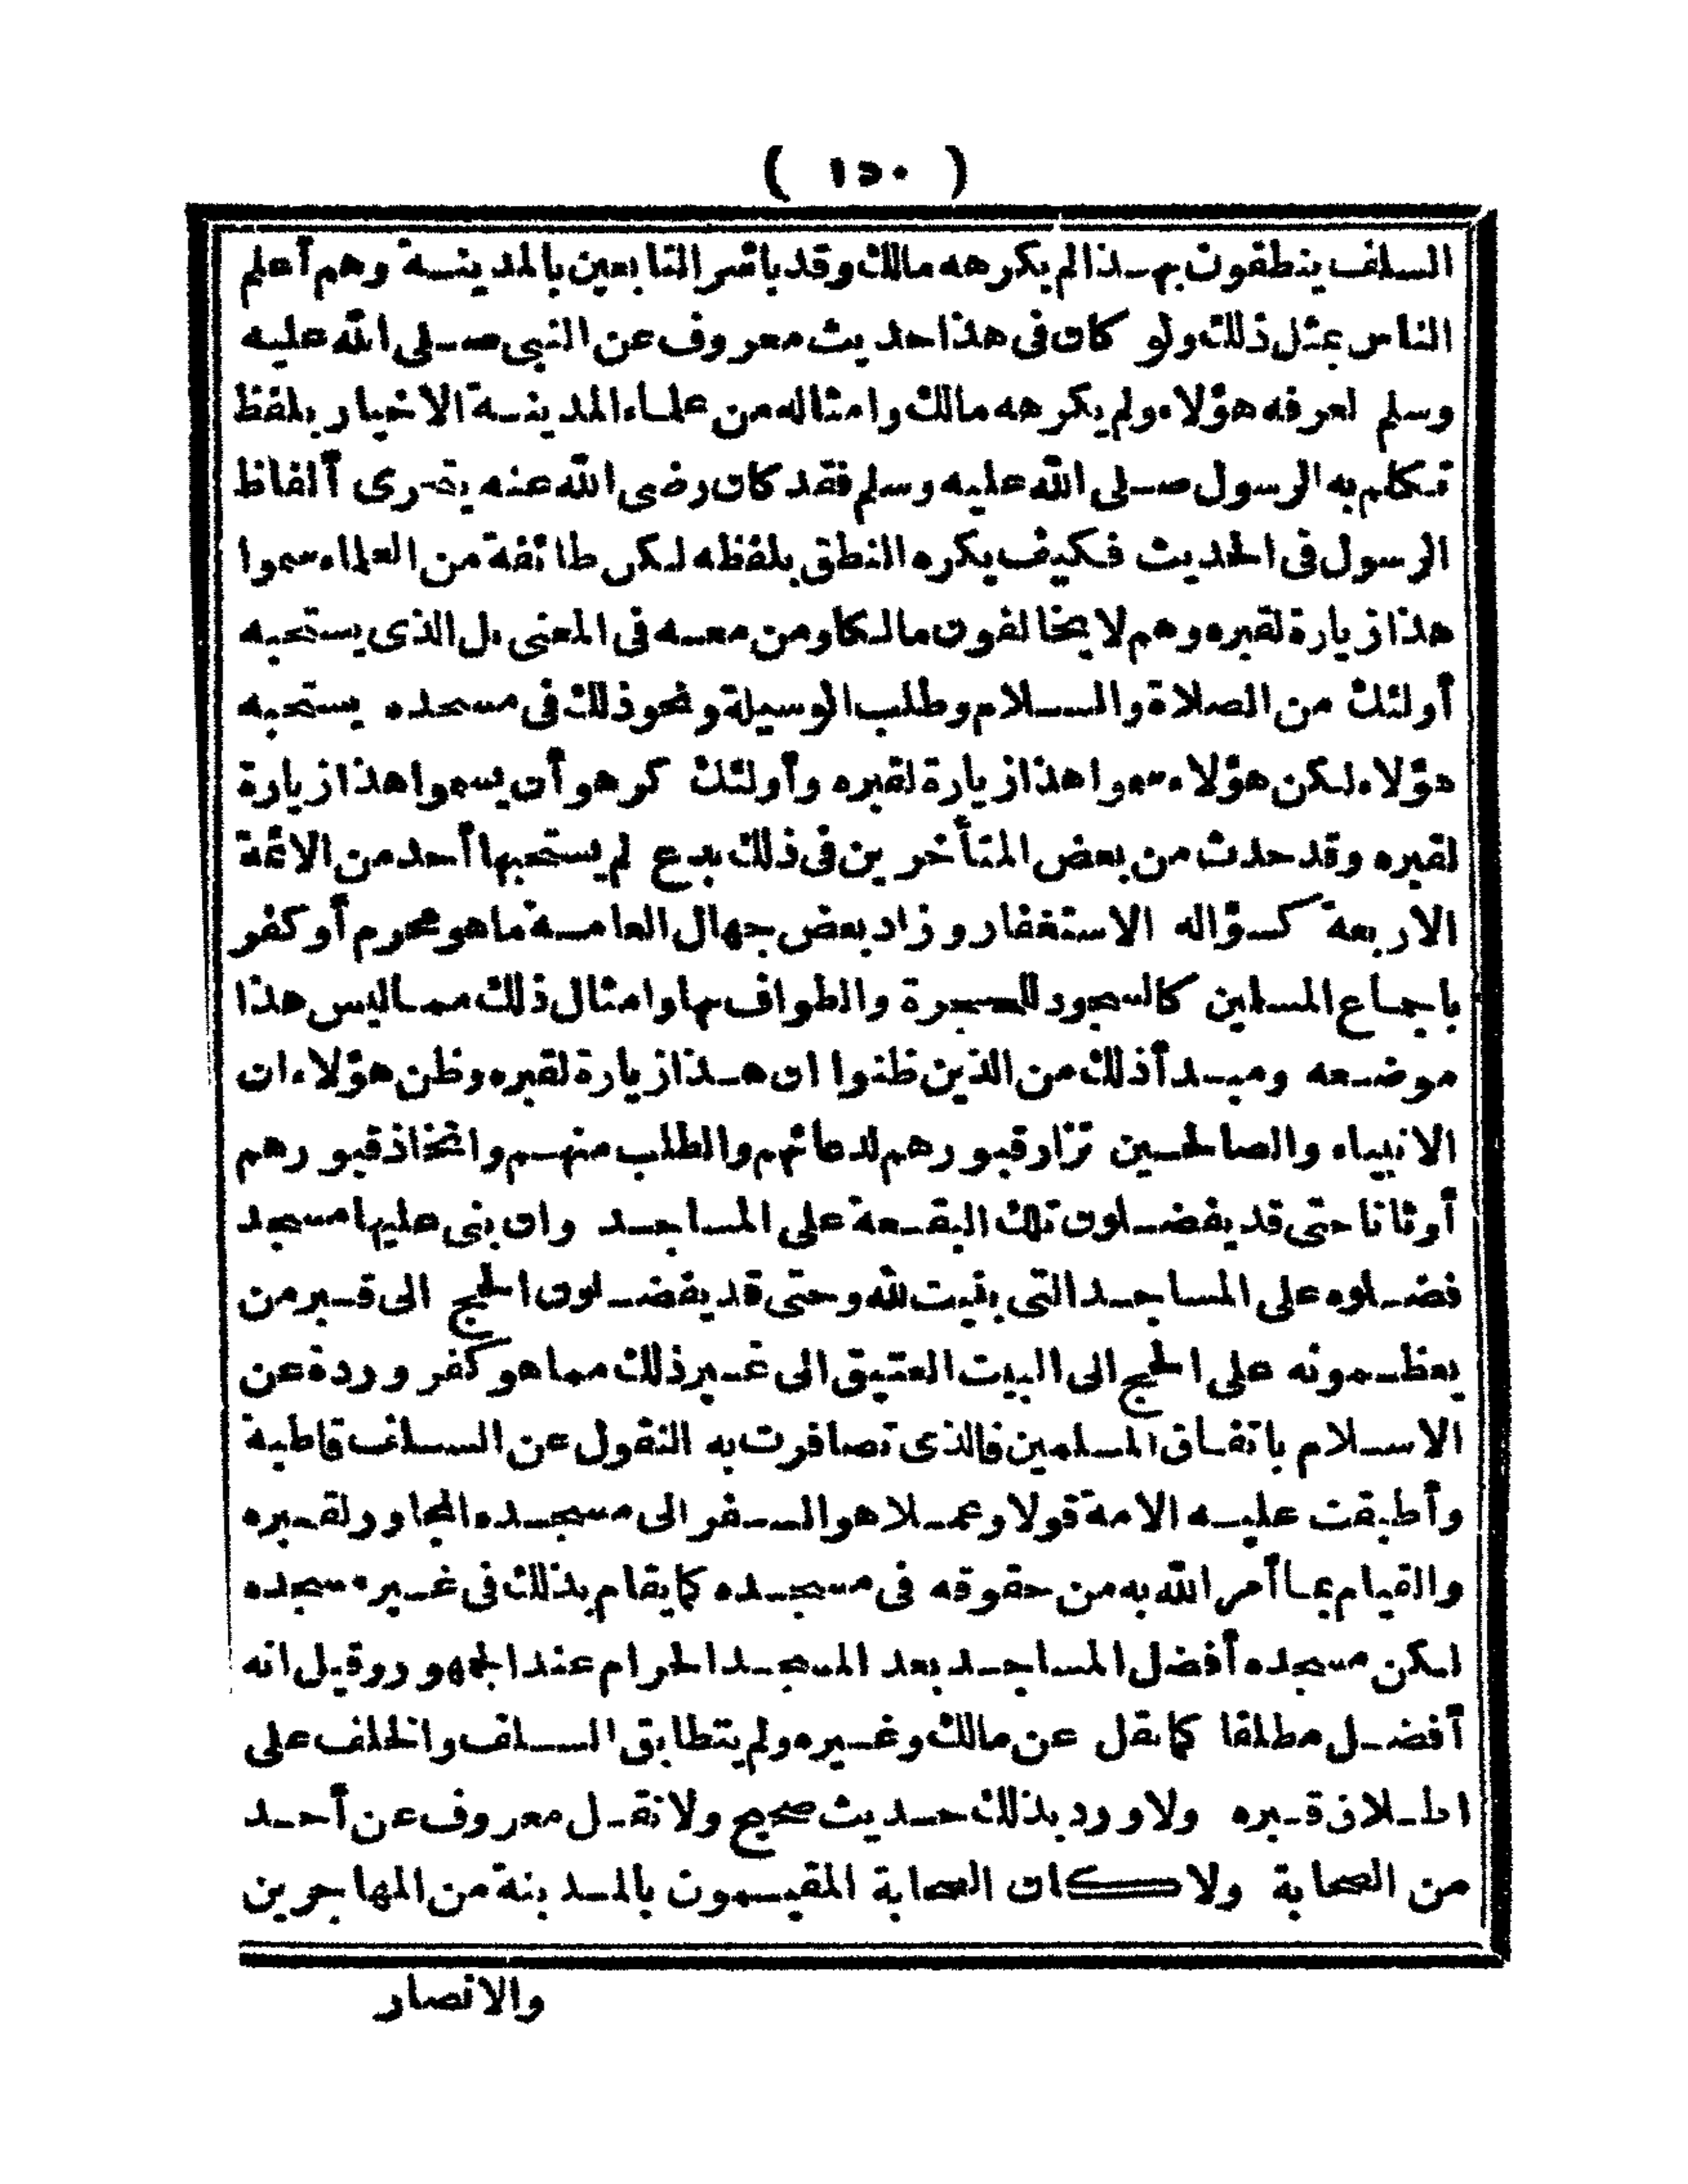 ( ١٥٠ )
السلف ينطقون بهذا لم يكرهه مالك وقد باشر التابعين بالمدينة وهم أعلم
الناس بمثل ذلك ولو كان فى هذا حديث معروف عن النبى صلى الله عليه
وسلم لعرفه هؤلاء ولم يكرهه مالك وامثاله من علماء المدينة الاخيار بلفظ
تكلم به الرسول صلى الله عليه وسلم فقد كان رضى الله عنه يتحرى ألفاظ
الرسول فى الحديث فكيف يكره النطق بلفظه لكن طائفة من العلماء سموا
هذا زيارة لقبره وهم لا يخالفون مالكا ومن معه فى المعنى بل الذى يستحبه
أولئك من الصلاة والسلام وطلب الوسيلة ونحو ذلك فى مسجده يستحبه
هؤلاء لكن هؤلاء سموا هذا زيارة لقبره وأولئك كرهوا أن يسموا هذا زيارة
لقبره وقد حدث من بعض المتأخرين فى ذلك بدع لم يستحبها أحد من الائمة
الاربعة كسؤاله الاستغفار وزاد بعض جهال العامة ما هو محرم أو كفر
باجماع المسلمين كالسجود للحجرة والطواف بها وامثال ذلك مما ليس هذا
موضعه ومبدأ ذلك من الذين ظنوا ان هذا زيارة لقبره وظن هؤلاء ان
الانبياء والصالحين تزار قبورهم لدعائهم والطلب منهم واتخاذ قبورهم
أوثانا حتى قد يفضلون تلك البقعة على المساجد وان بنى عليها مسجد
فضلوه على المساجد التى بنيت لله وحتى قد يفضلون الحج الى قبر من
يعظمونه على الحج الى البيت العتيق الى غير ذلك مما هو كفر وردة عن
الاسلام باتفاق المسلمين فالذى تصافرت به النقول عن السلف قاطبة
وأطبقت عليه الامة قولا وعملا هو السفر الى مسجده المجاور لقبره
والقيام بما أمر الله به من حقوقه فى مسجده كما يقام بذلك فى غير مسجده
لكن مسجده أفضل المساجد بعد المسجد الحرام عند الجمهور وقيل انه
أفضل مطلقا كما نقل عن مالك وغيره ولم يتطابق السلف والخلف على
اطلاق قبره ولا ورد بذلك حديث صحيح ولا نقل معروف عن أحد
من الصحابة ولا كان الصحابة المقيمون بالمدينة من المهاجرين
والانصار